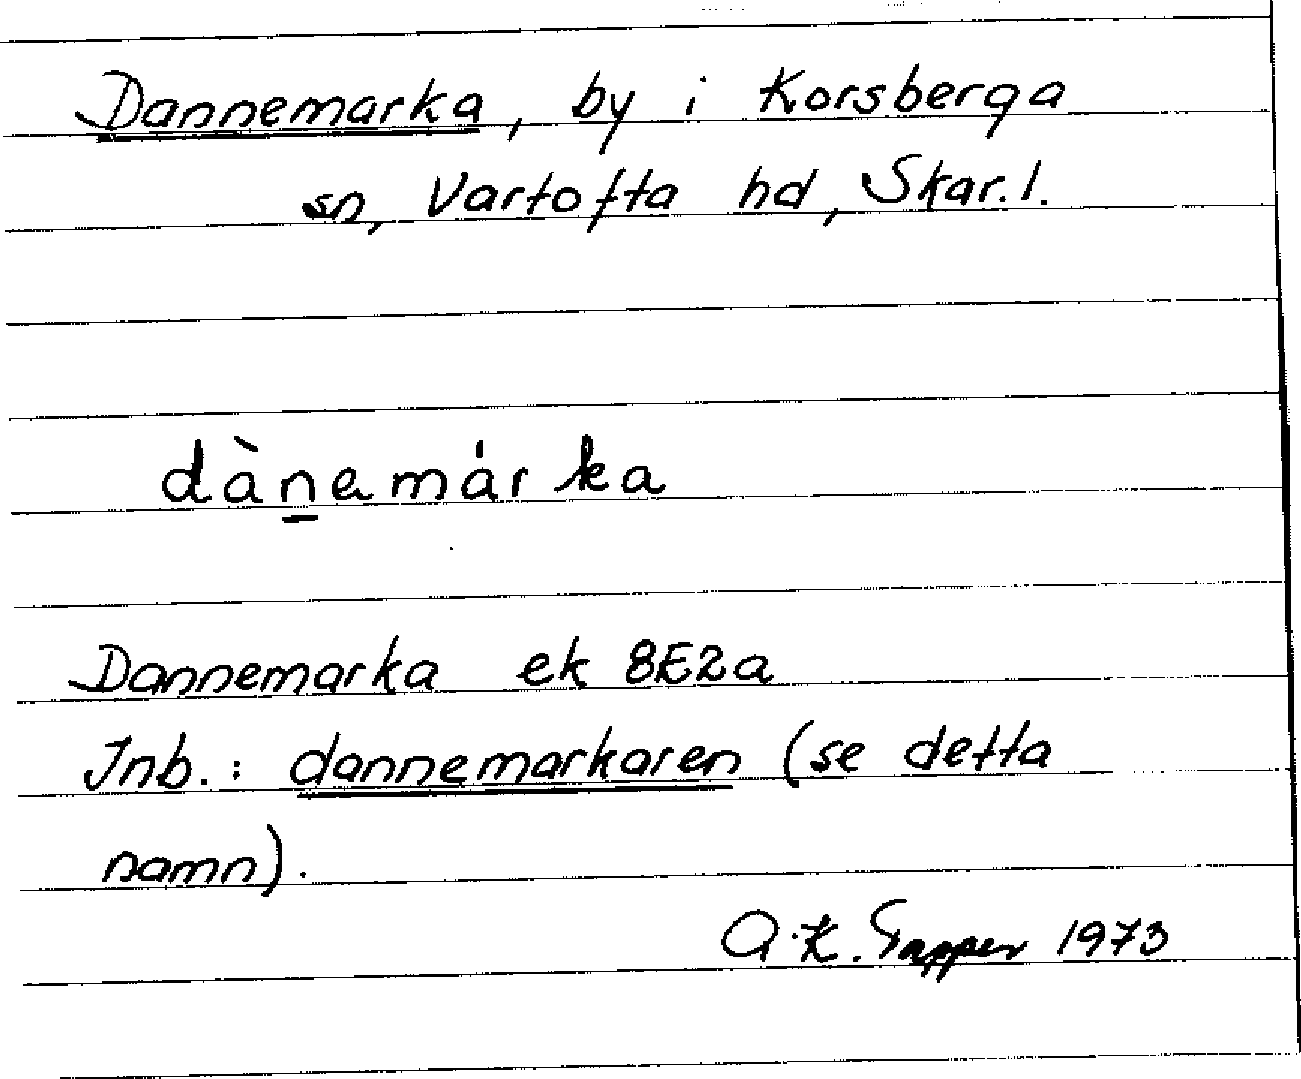 Dannemarka, by i Korsberga
sn, Vartofta hd, Skar. l.
dànemárka
Dannemarka ek 8E2a
Inb.: dannemarkaren (se detta
namn).
A.K. Tapper 1973